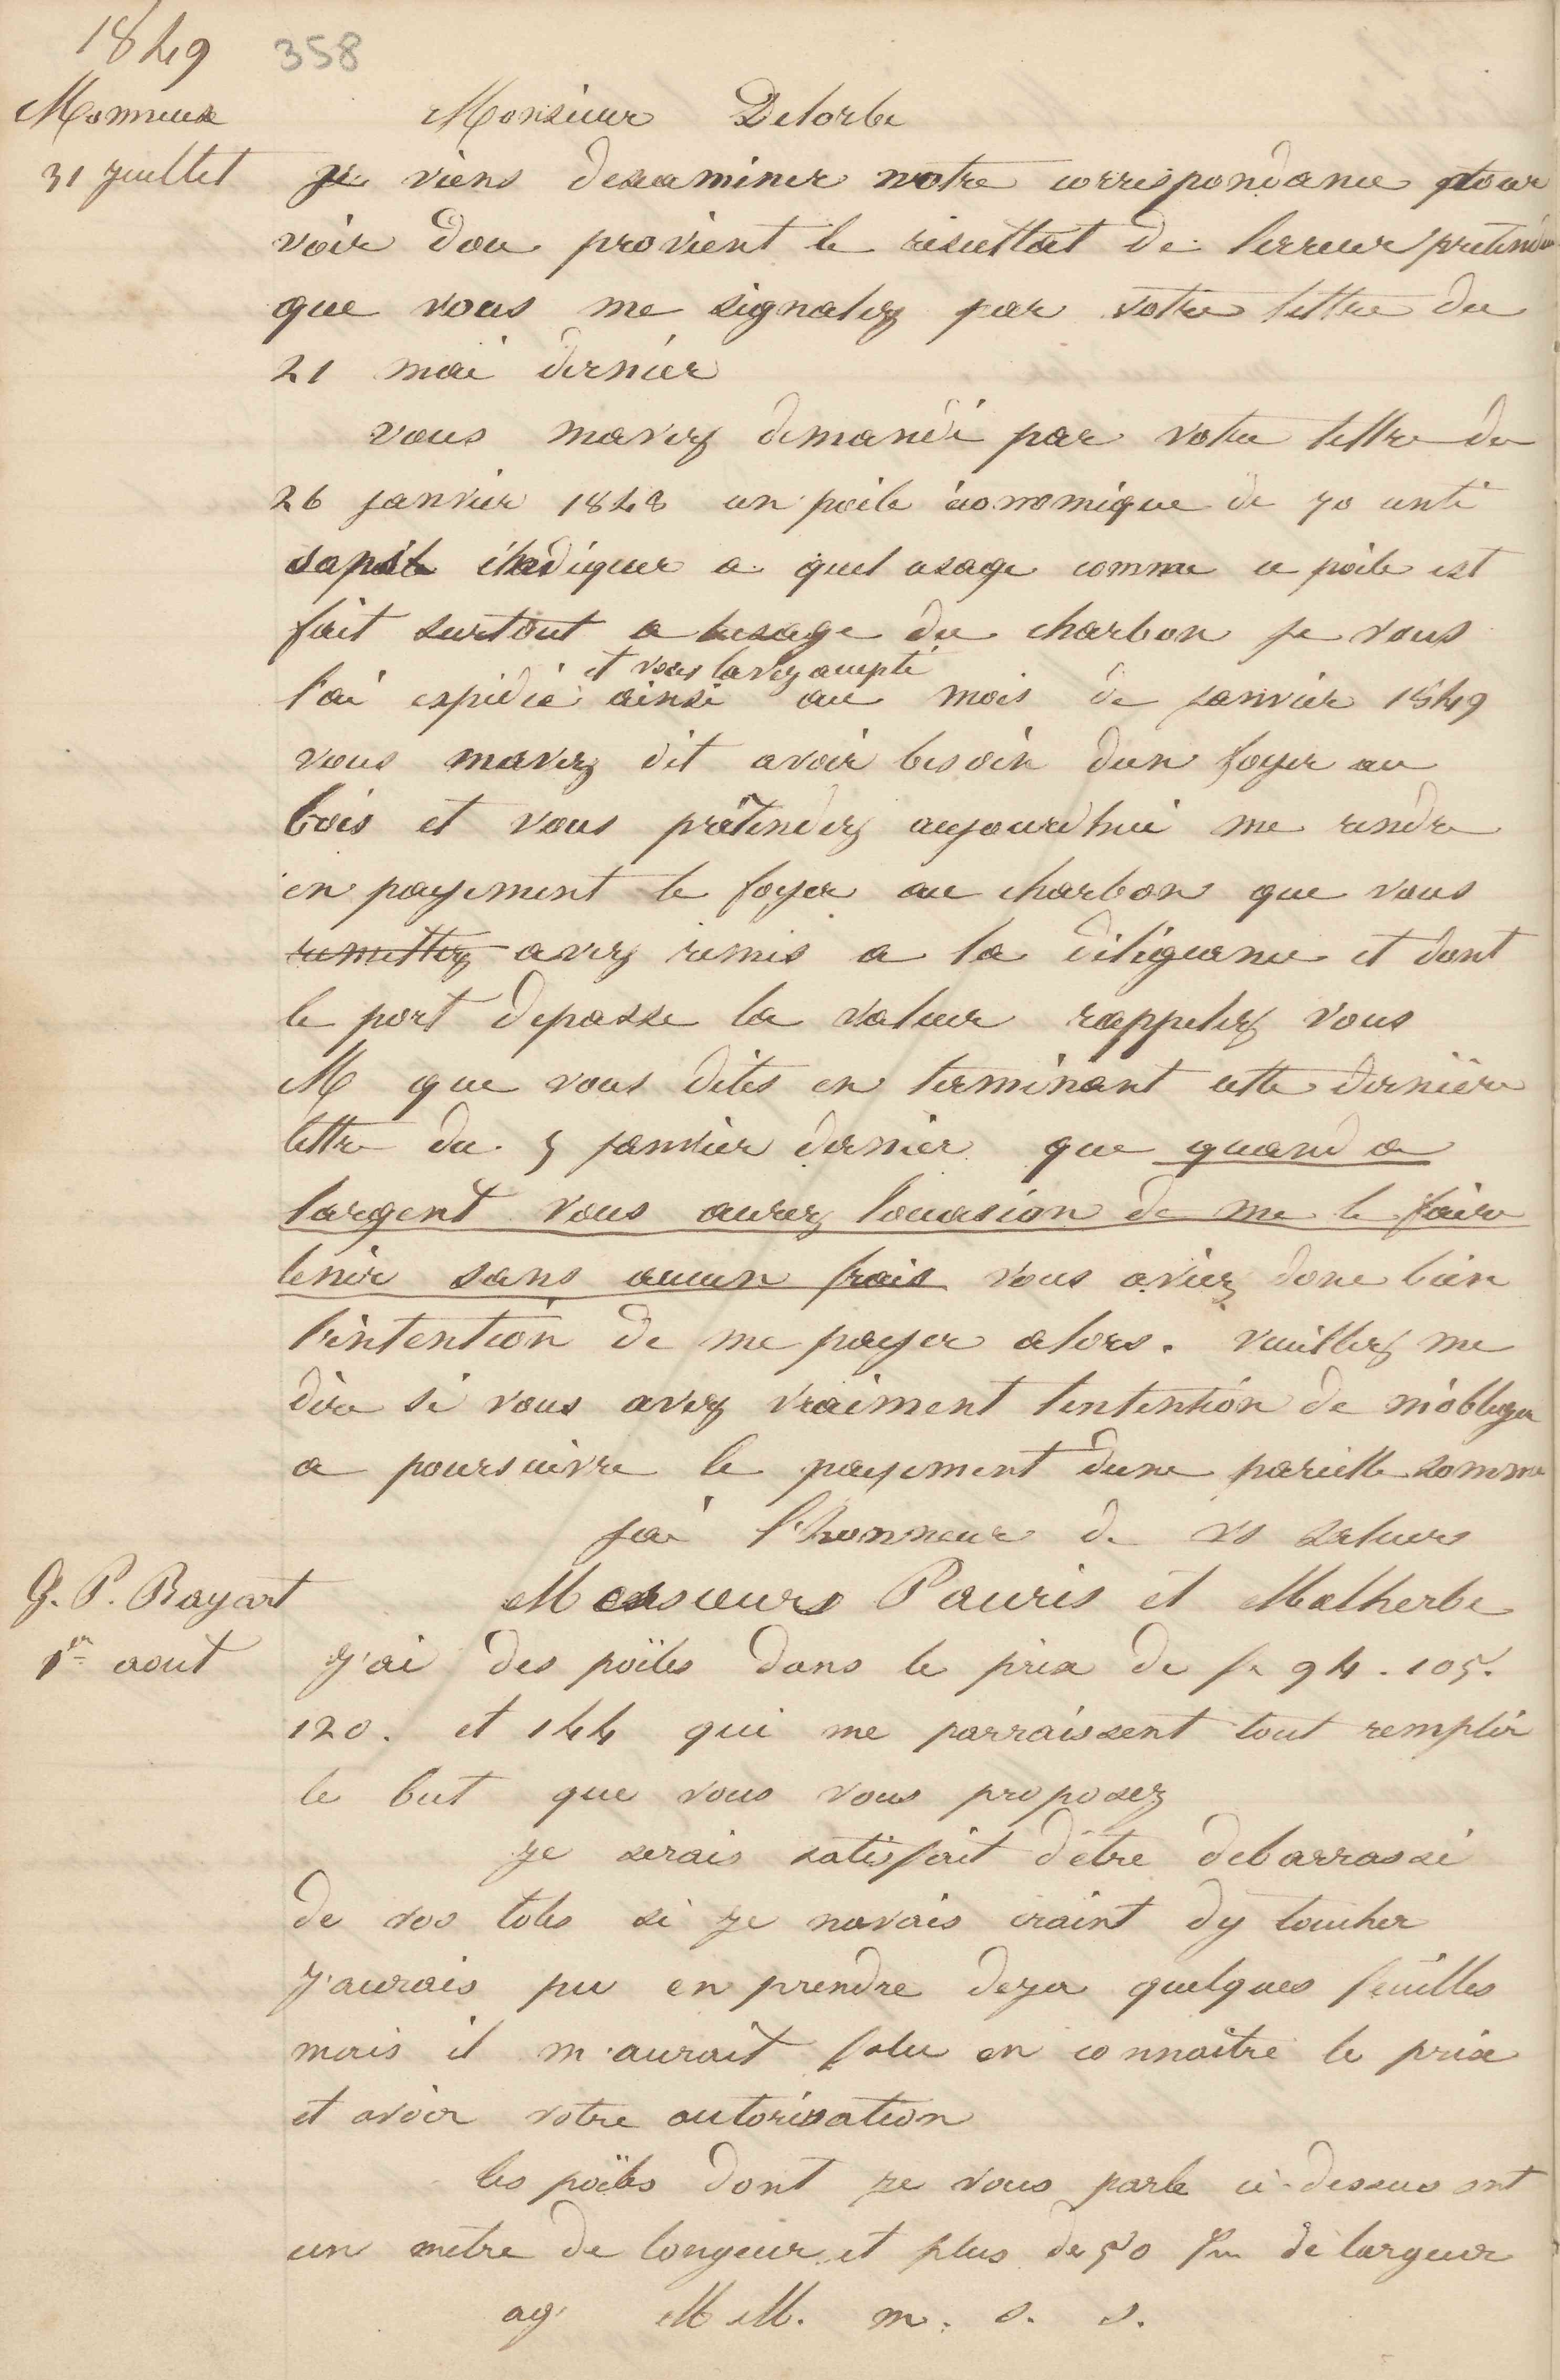 1849 358
Monnieux Monsieur Delorbe
31 juillet je viens dexaminer notre correspondance pour
voir dou provient le resultat de lerreur prétendu
que vous me signalez par votre lettre du
21 mai dernier
vous mavez demandé par votre lettre du
26 janvier 1848 un poile économique de 70 centi
a quel usage comme ce poile est
fait surtout a lusage du charbon je vous
et vous lavez accepté
l'ai expédié ainsi au mois de janvier 1849
vous mavez dit avoir besoin dun foyer au
bois et vous prétendez aujourdhui me rendre
en payement le foyer au charbon que vous
remettez avez remis a la diligeance et dont
le port depasse la valeur rappelez vous
M que vous dites en terminant cette dernière
lettre du 5 janvier dernier que quand a
largent vous aurez loccasion de me le faire
tenir sans aucun frais vous aviez donc bien
l'intention de me payer alors. veuillez me
dire si vous avez vraiment lintention de m'obliger
a poursuivre le payement dune pareille somme
jai l'honneur de vs saluer
G. P. Bayart Messieurs Pauris et Malherbe
1er aout J'ai des poïles dans le prix de fr 94. 105.
120. et 144 qui me parraissent tout remplir
le but que vous vous proposez
je serais satisfait d'etre debarrassé
de vos toles si je navais craint dy toucher
J'aurais pu en prendre deja quelques feuilles
mais il m'aurait falu en connaitre le prix
et avoir votre autorisation
les poïles dont je vous parle ci-dessus ont
un mètre de longeur et plus de 50 de largeur
ag MM. m. s. s.